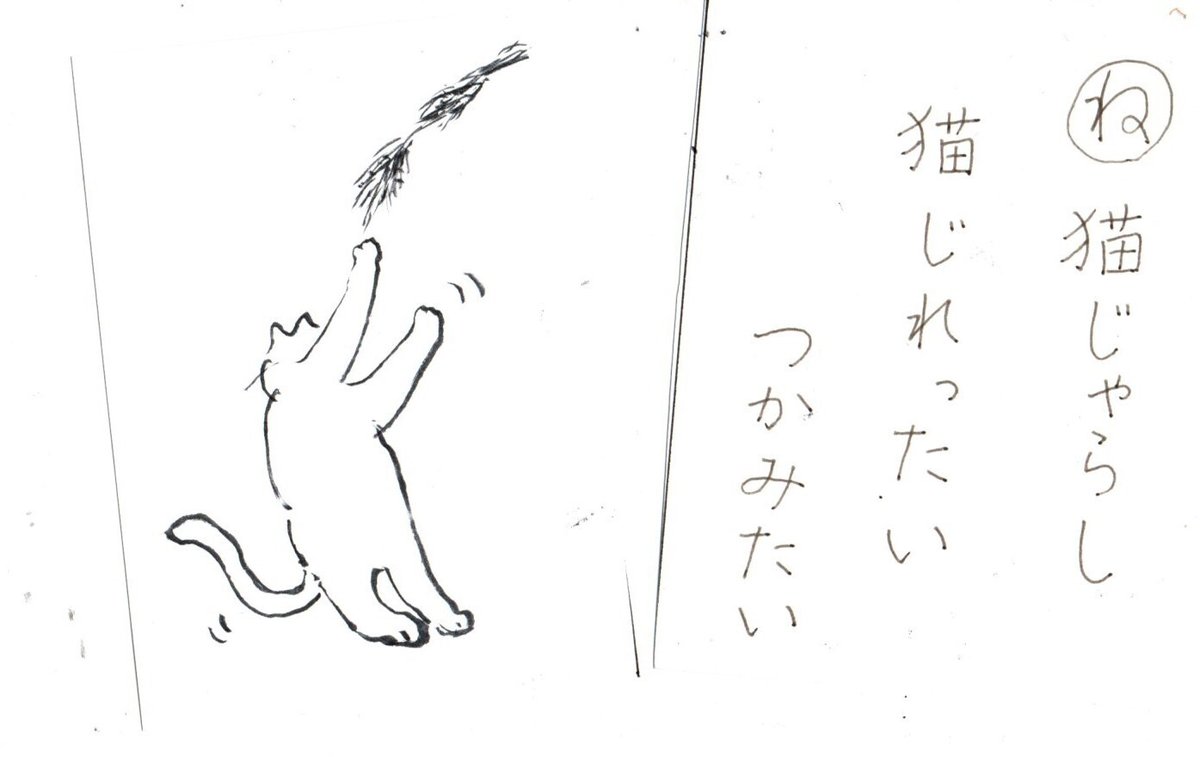 ね 猫じゃらし
猫じれったい
つかみたい